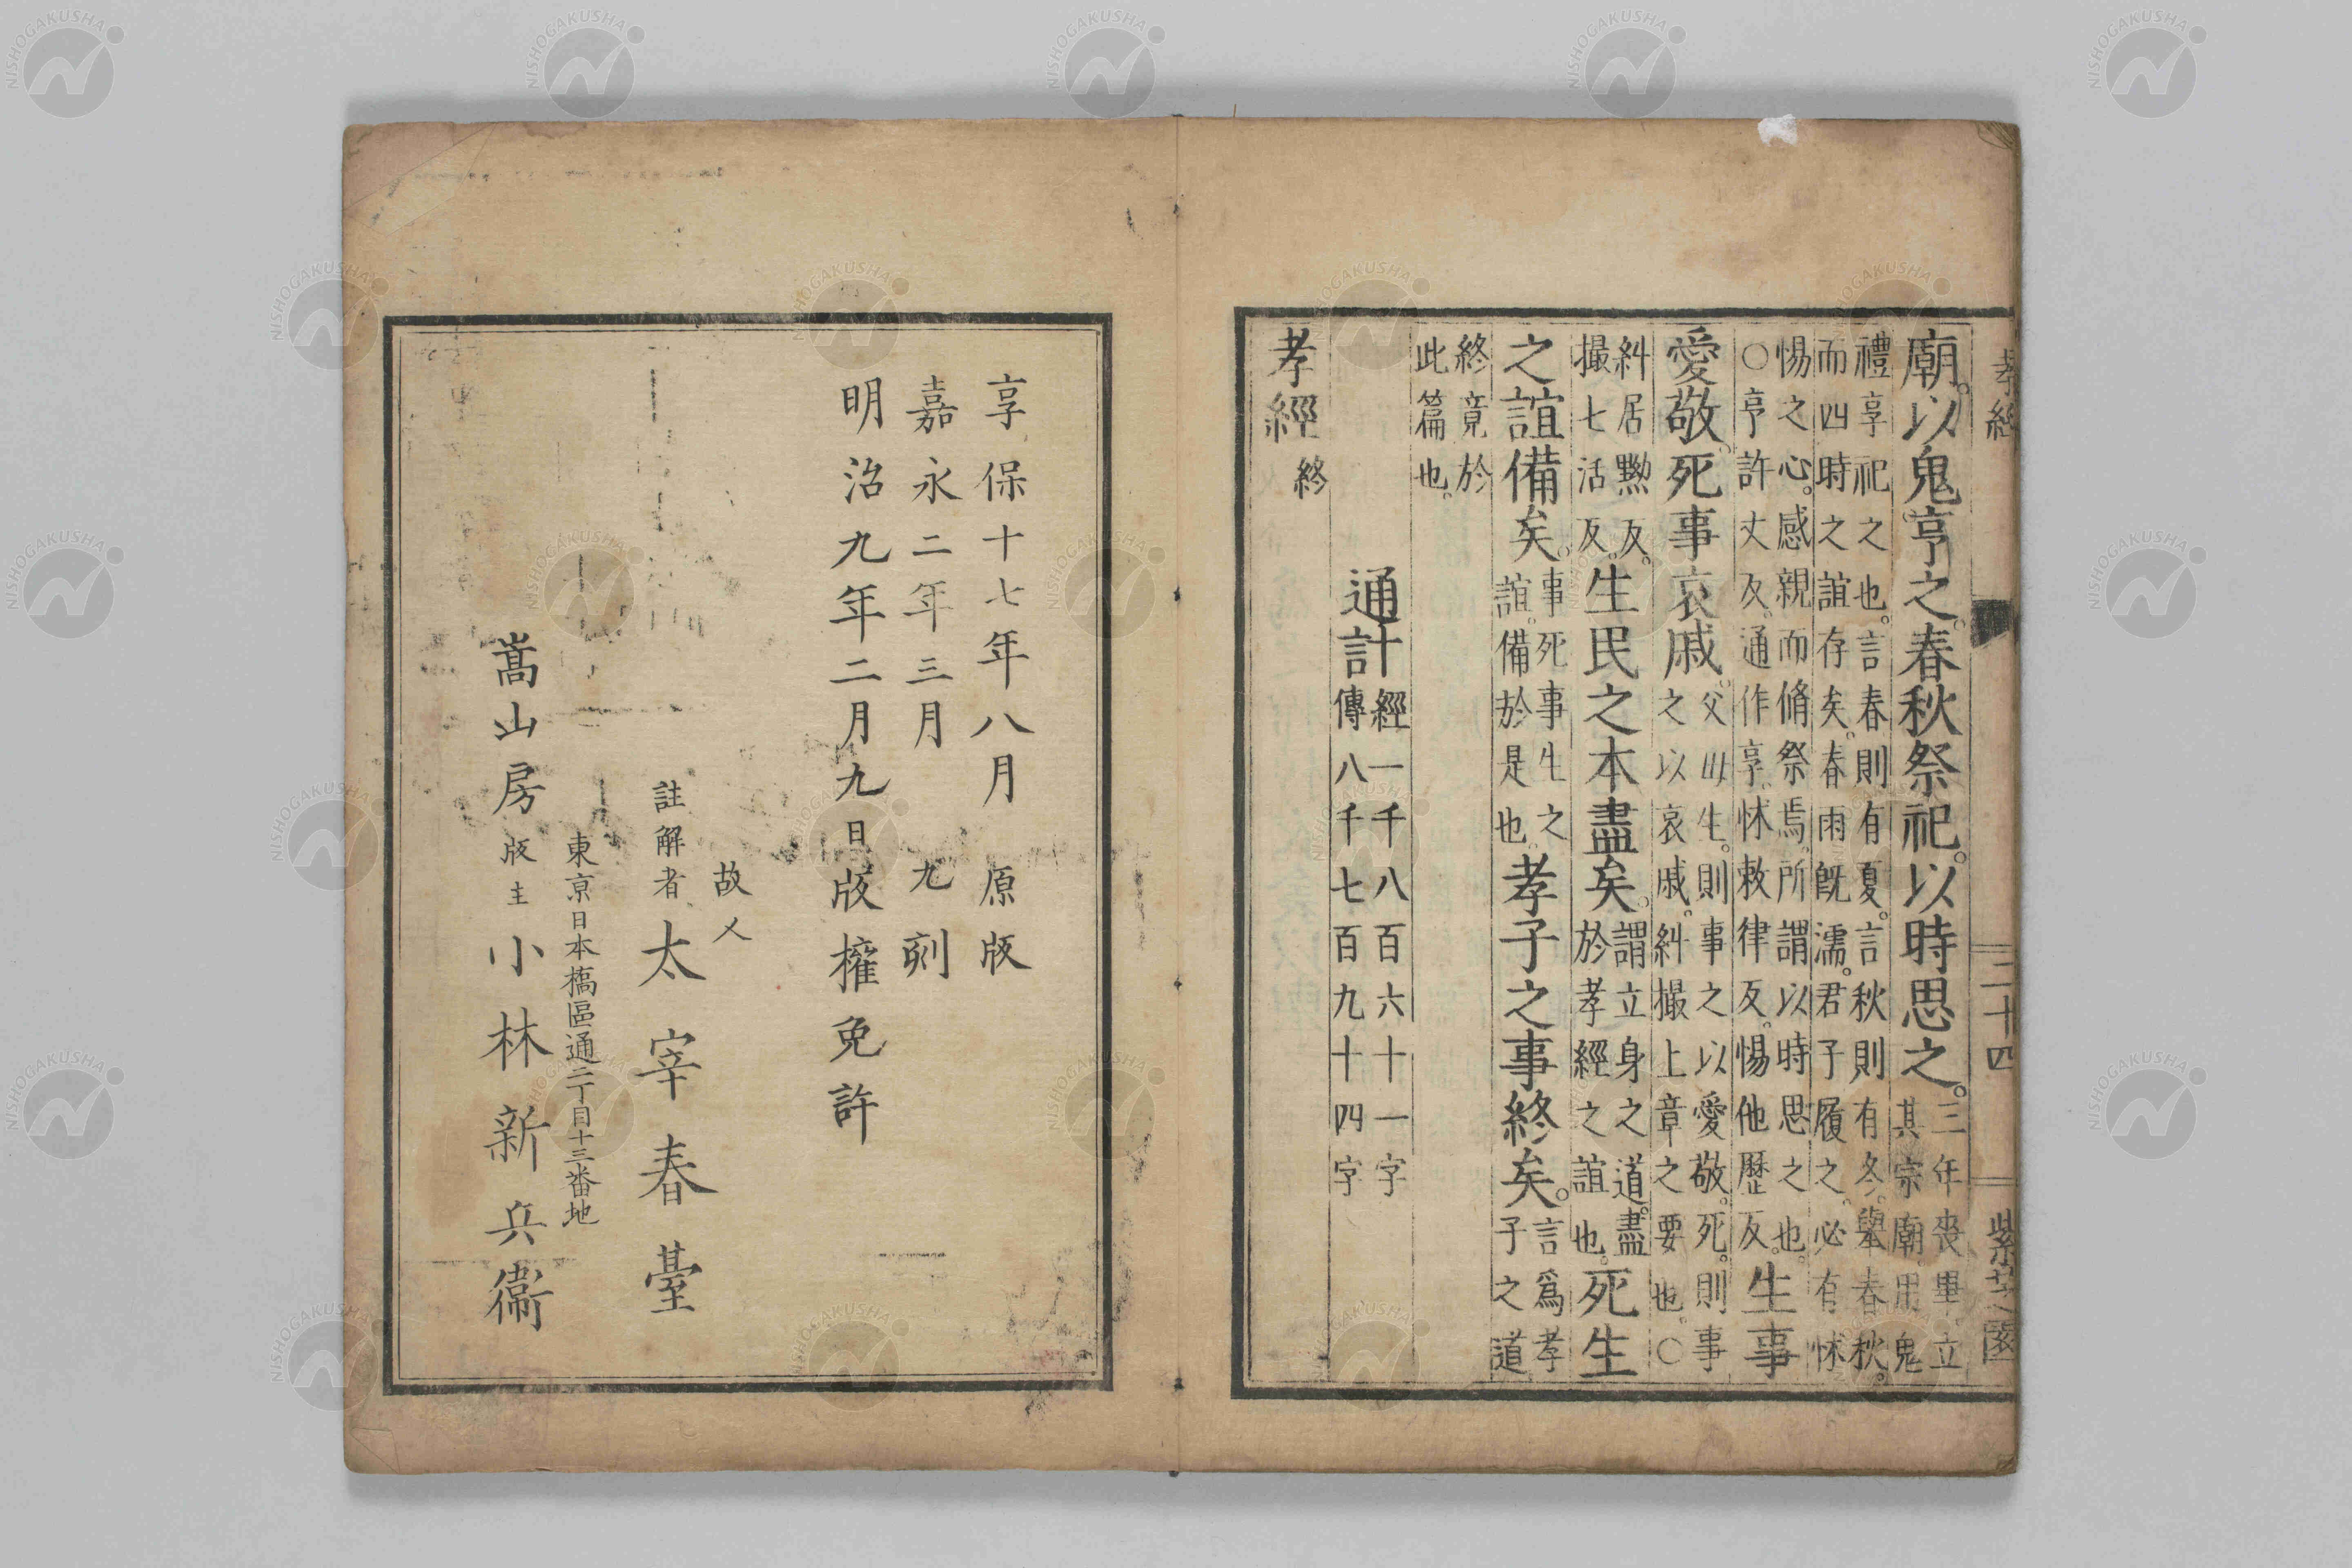 孝經　三十四　紫芝園
廟。以鬼亨之。春秋祭祀。以時思之。三年喪畢。立
其宗廟。用鬼
禮享祀之也。言春則有夏。言秋則有冬。舉春秋。
而四時之誼存矣。春雨既濡。君子履之。必有怵
惕之心。感親而脩祭焉。所謂以時思之也。
○亨許丈反。通作享。怵敕律反。惕他歷反。生事
愛敬。死事哀戚。父母生。則事之以愛敬。死。則事
之以哀戚。糾撮上章之要也。○
糾居黝反。
撮七活反。生民之本盡矣。謂立身之道。盡
於孝經之誼也。死生
之誼備矣。事死事生之
誼。備於是也。孝子之事終矣。言爲孝
子之道
終竟於
此篇也。
通計　經一千八百六十一字
傳八千七百九十四字
孝經終
享保十七年八月　原版
嘉永二年三月　九刻
明治九年二月九日版権免許
故人
註解者　太宰春臺
東京日本橋區通二丁目十三番地
嵩山房　版主　小林新兵衞
NISHOGAKUSHA